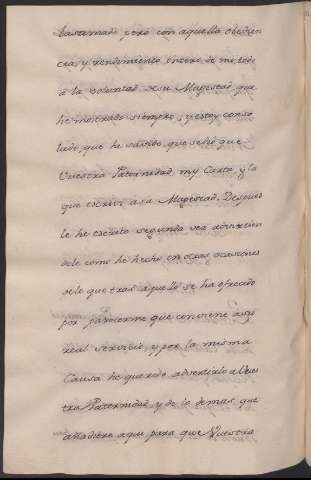 lastimado pero con aquella obedien
cia, y rendimiento entero de mi todo
a la voluntad de su Magestad que
he mostrado siempre, y estoy conso
lado que he savido que se dió que
Vuestra Paternidad my Carta, y la
que escrivi a su Magestad. Despues
le he escrito segunda vez advirtien
dole como he hecho en otras ocasiones
de lo que tras aquello se ha ofrecido
por parecerme que conviene a su
real servicio, y por la misma
Causa he querido advertirlo a Vues
tra Paternidad y de lo demas que
añadiere aqui para que Vuestra